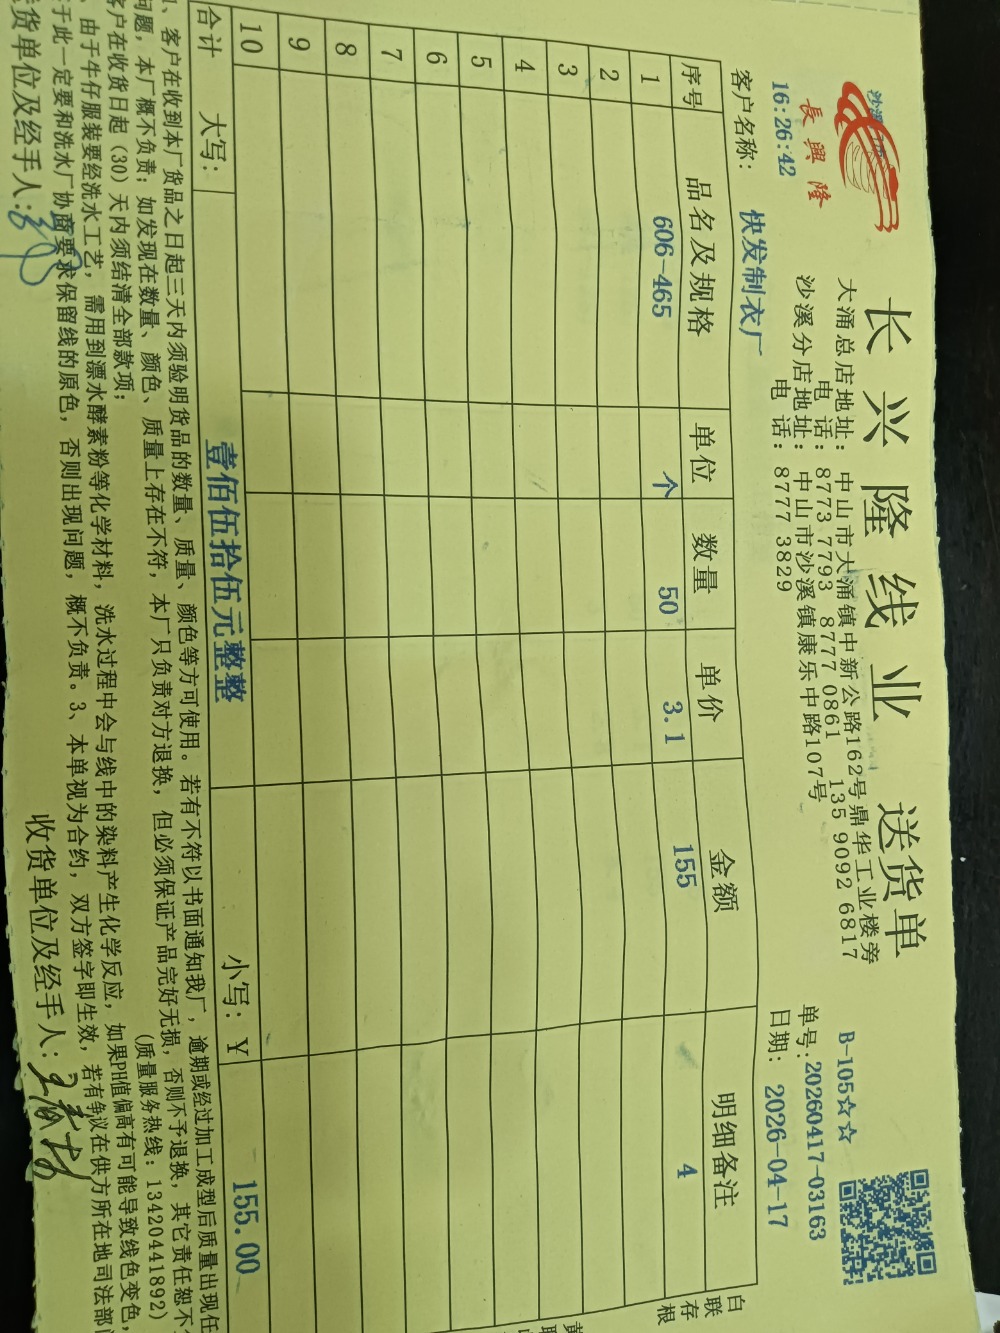 長興隆
长兴隆线业 送货单
大涌总店地址：中山市大涌镇中新公路162号鼎华工业楼旁
电 话：8773 7793 8777 0861 135 9092 6817
沙溪分店地址：中山市沙溪镇康乐中路107号
电 话：8777 3829
B-105☆☆
单号：20260417-03163
日期：2026-04-17
16:26:42
客户名称：快发制衣厂
序号 品名及规格 单位 数量 单价 金额 明细备注
1 606-465 个 50 3.1 155 4
2
3
4
5
6
7
8
9
10
合计 大写：壹佰伍拾伍元整整 小写：Y 155.00
白联存根
、客户在收到本厂货品之日起三天内须验明货品的数量、质量、颜色等方可使用。若有不符以书面通知我厂，逾期或经过加工成型后质量出现任
问题，本厂概不负责；如发现在数量、颜色、质量上存在不符，本厂只负责对方退换，但必须保证产品完好无损，否则不予退换，其它责任恕不
客户在收货日起（30）天内须结清全部款项；
(质量服务热线：13420441892)
、由于牛仔服装要经洗水工艺，需用到漂水酵素粉等化学材料，洗水过程中会与线中的染料产生化学反应，如果PH值偏高有可能导致线色变色，
于此一定要和洗水厂协商要求保留线的原色，否则出现问题，概不负责。3、本单视为合约，双方签字即生效，若有争议在供方所在地司法部
货单位及经手人：
收货单位及经手人：